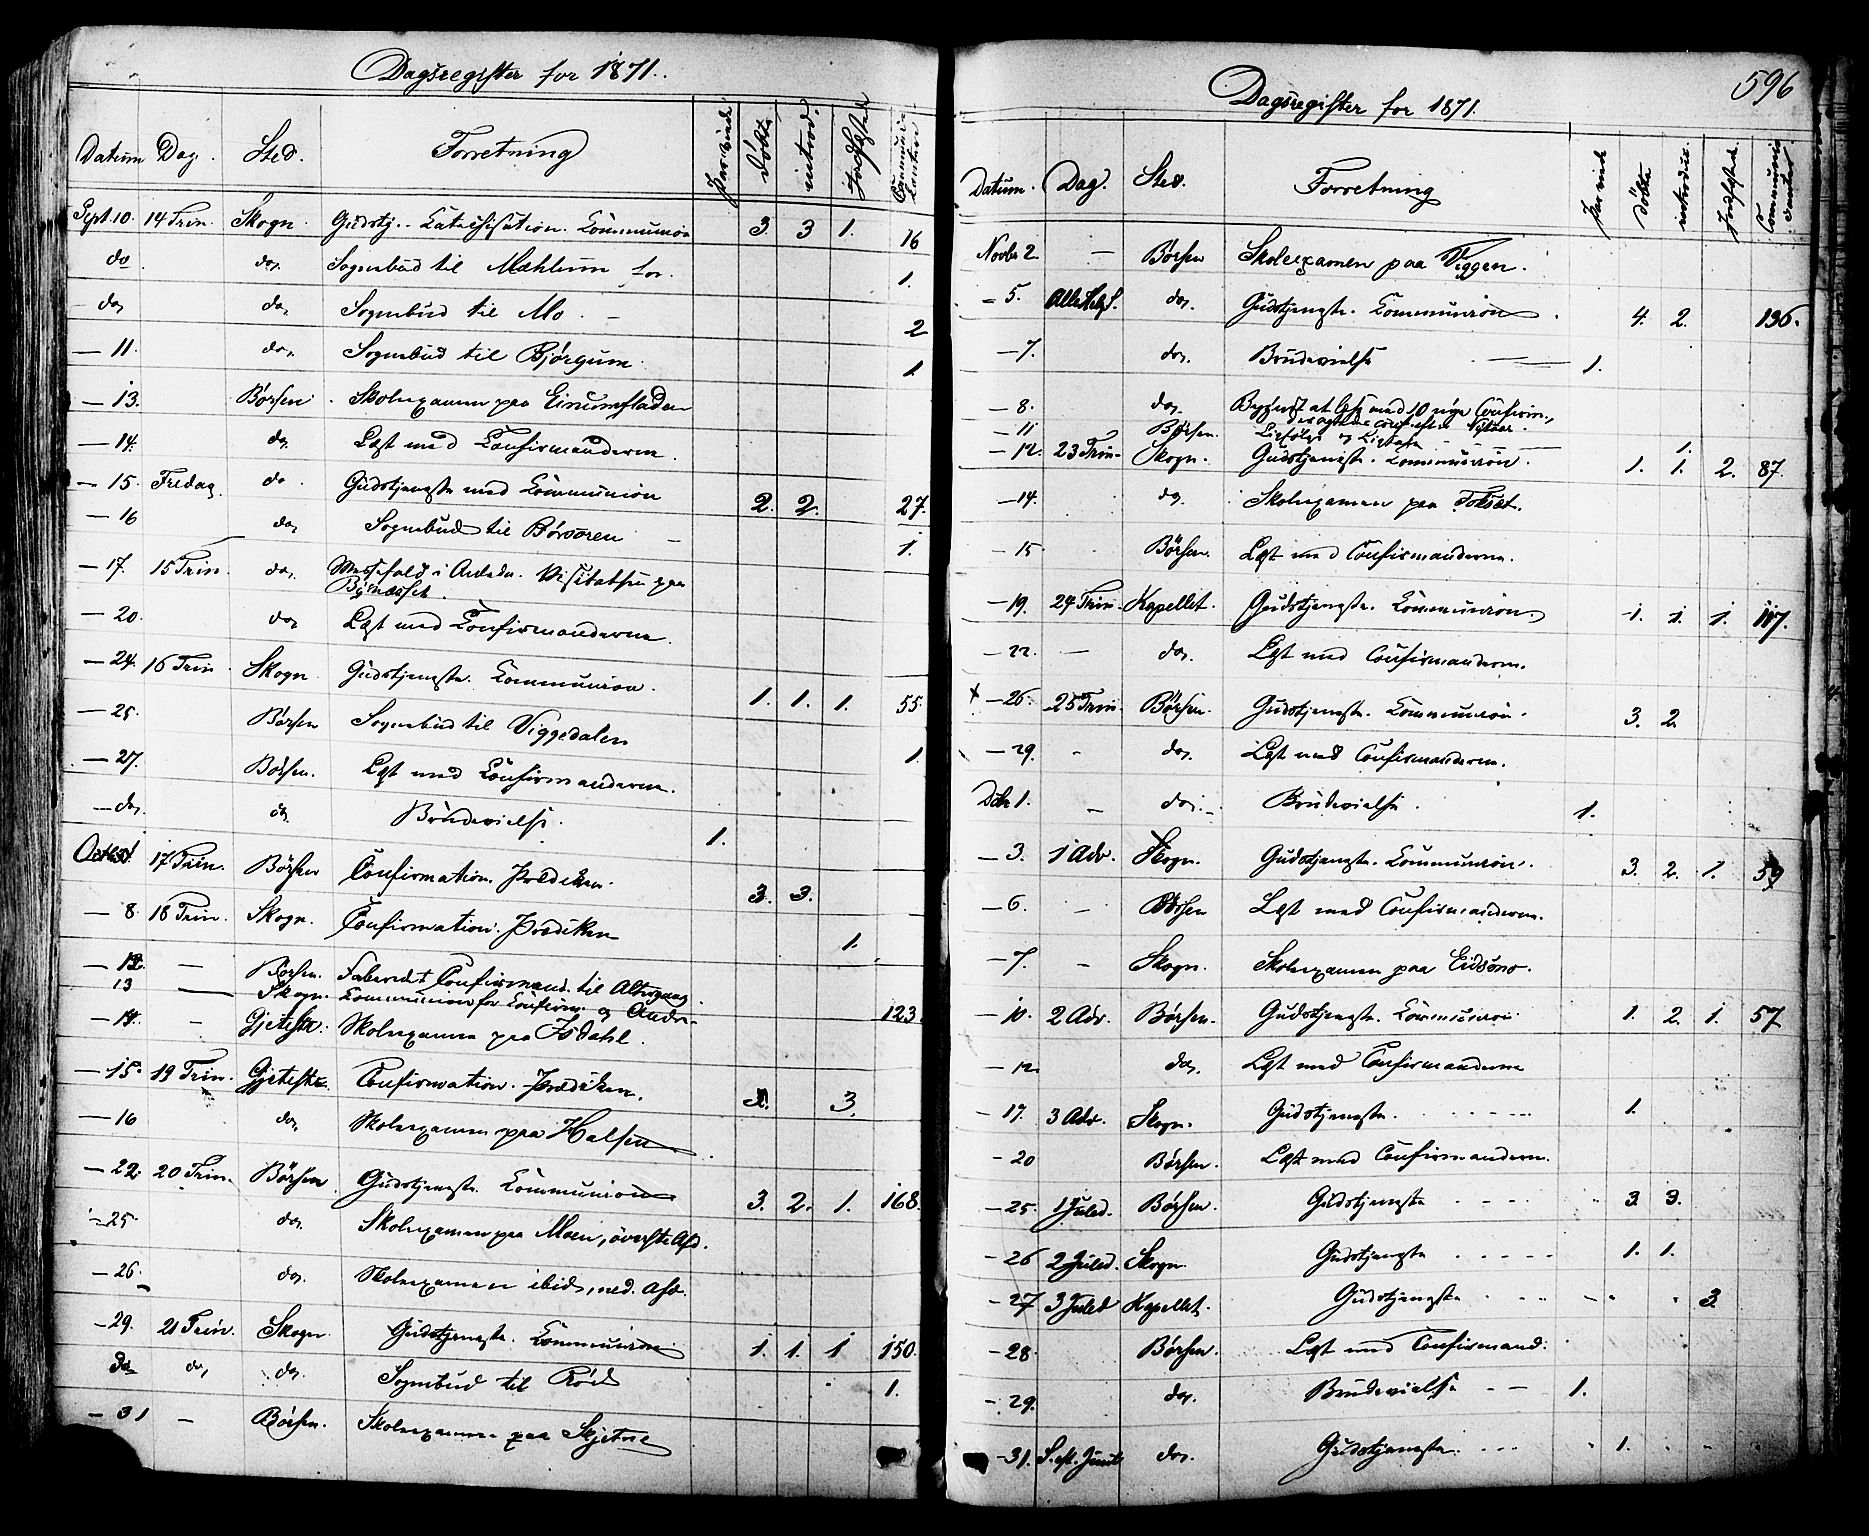 Dagsregister for 1871.
Datum Dag. Sted. Forretning Par viede døbte introd. Jordfæstede Communicanter
Sept. 10. 14 Trin. Skogn. Gudstj. Catechisation. Communion 3. 3 1. 16
do do. Sognebud til Mæhlum 1.
do. do. Sognebud til Mo. — 2
— 11. do. Sognebud til Bjørgum. 1.
— 13. Børsen Skoleexamen paa
— 14. do. Læst med Confirmanderne.
— 15. Fredag. do. Gudstjeneste med Communion 2. 2. 27.
— 16 do. Sognebud til Børsøren — 1.
— 17. 15 Trin. do. Messefald i Visitatsen paa
Bynæsset.
— 20. do. Læst med Confirmanderne.
— 24. 16 Trin. Skogn Gudstjeneste. Communion. 1. 1. 1. 55.
— 25. Børsen Sognebud til Viggedalen 1
— 27. Børsen. Læst med Confirmanderne.
— do. do. Brudevielse. 1.
17 Trin. Børsen Confirmation. Prædiken. 3. 3.
— 8. 18 Trin. Skogn. Confirmation. Prædiken 1.
— 12. — Børsen. Confirmand. til Altergang.
13 — Skogn. Communion for Confirm. og Andre 123.
— 14. — Gjeteste. Skoleexamen paa Isdahl.
— 15. 19 Trin. Gjeteste. Confirmation. Prædiken. 3.
— 16 do. Skoleexamen paa Halsen
— 22. 20 Trin. Børsen Gudstjeneste. Communion 3. 2. 1. 168.
— 25. do. Skoleexamen paa Moen, øverste Afd.
— 26. do. Skoleexamen ibid, ned. Afd.
— 29. 21 Trin. Skogn. Gudstjeneste. Communion 1. 1. 1 150.
do do, do. Sognebud til Rød 1.
— 31 — Børsen. Skoleexamen paa Skjetne
596
Dagsregister for 1871.
Datum. Dag. Sted. Forretning Par viede døbte introduc. Jordfæstede Communicanter
Novbr 2 — Børsen Skoleexamen paa Viggen.
— 5. Alle Helg. S. do. Gudstjeneste. Communion. 4. 2. 136.
— 7. do. Brudevielse — 1.
— 8. do. at læse med 10 nye Confirm.,
— 11 Børsen. Ligfølge og Ligtale — 1.
— 12. 23 Trin. Skogn. Gudstjeneste. Communion. 1. 1. 2. 87.
— 14. do. Skoleexamen paa Tokset.
— 15 Børsen. Læst med Confirmanderne.
— 19. 24 Trin. Kapellet. Gudstjeneste. Communion. 1. 1. 1. 117.
— 22. — do. Læst med Confirmanderne.
x — 26. 25 Trin. Børsen. Gudstjeneste. Communion. 3. 2.
— 29. - do. Læst med Confirmanderne.
Decbr 1. — do. — Brudevielse. 1.
— 3. 1 Adv. Skogn. Gudstjeneste. Communion. 3. 2. 1. 59
— 6. — Børsen Læst med Confirmanderne.
— 7. — Skogn. Skoleexamen paa Eidsmo.
— 10. 2 Adv. Børsen. Gudstjeneste. Communion. 1. 2. 1. 57
— 12. do. Læst med Confirmanderne
— 17. 3 Adv. Skogn. Gudstjeneste. 1.
— 20 Børsen. Læst med Confirmandern.
— 25. 1 Juled. Børsen. Gudstjeneste 3. 3.
— 26 2 Juled. Skogn. Gudstjeneste 1. 1.
— 27 3 Juled Kapellet. Gudstjeneste 3.
— 28. Børsen. Læst med Confirmand.
— 29. do. Brudevielse — — 1.
— 31. S. eft. Juul do. Gudstjeneste. 1.